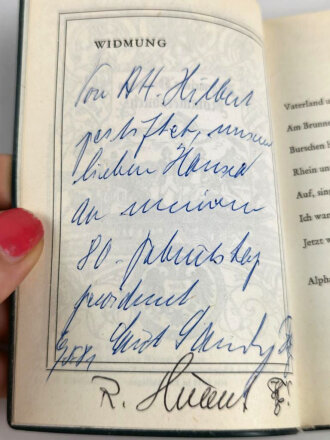 WIDMUNG
Von AH. Hilbert
gestiftet, unserer
lieben Hansea
an meinem
80. Geburtstag
gewidmet
R. Hilbert
Vaterland u
Am Brunne
Burschen h
Rhein un
Auf, sing
Ich war
Jetzt w
Alpha